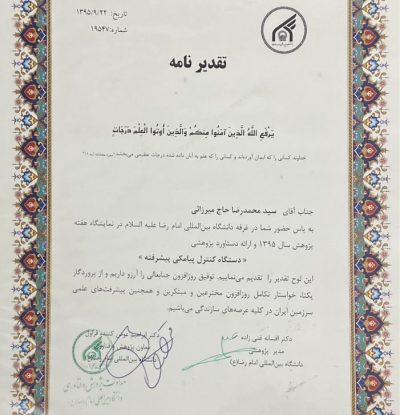 تاریخ: ۱۳۹۵/۹/۲۲
شماره: ۱۹۵۴۷
تقدیر نامه
یَرْفَعِ اللَّهُ الَّذینَ آمَنُوا مِنکُمْ وَالَّذینَ أُوتُوا الْعِلْمَ دَرَجَاتٍ
خداوند کسانی را که ایمان آورده‌اند و کسانی را که علم به آنان داده شده درجات عظیمی می‌بخشد
جناب آقای سید محمدرضا حاج میرزائی
به پاس حضور شما در غرفه دانشگاه بین‌المللی امام رضا علیه السلام در نمایشگاه هفته
پژوهش سال ۱۳۹۵ و ارائه دستاورد پژوهشی
« دستگاه کنترل پیامکی پیشرفته »
این لوح تقدیر را تقدیم می‌نماییم. توفیق روزافزون جنابعالی را آرزو داریم و از پروردگار
یکتا، خواستار تکامل روزافزون مخترعین و مبتکرین و همچنین پیشرفت‌های علمی
سرزمین ایران در کلیه عرصه‌های سازندگی می‌باشیم.
دکتر افسانه غنی زاده
مدیر پژوهشی
دانشگاه بین‌المللی امام رضا(ع)
دکتر ابراهیم
معاون پژوهش
دانشگاه بین‌المللی امام